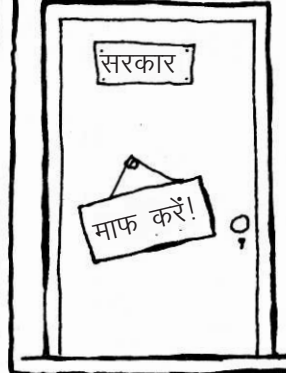 सरकार
माफ करें!